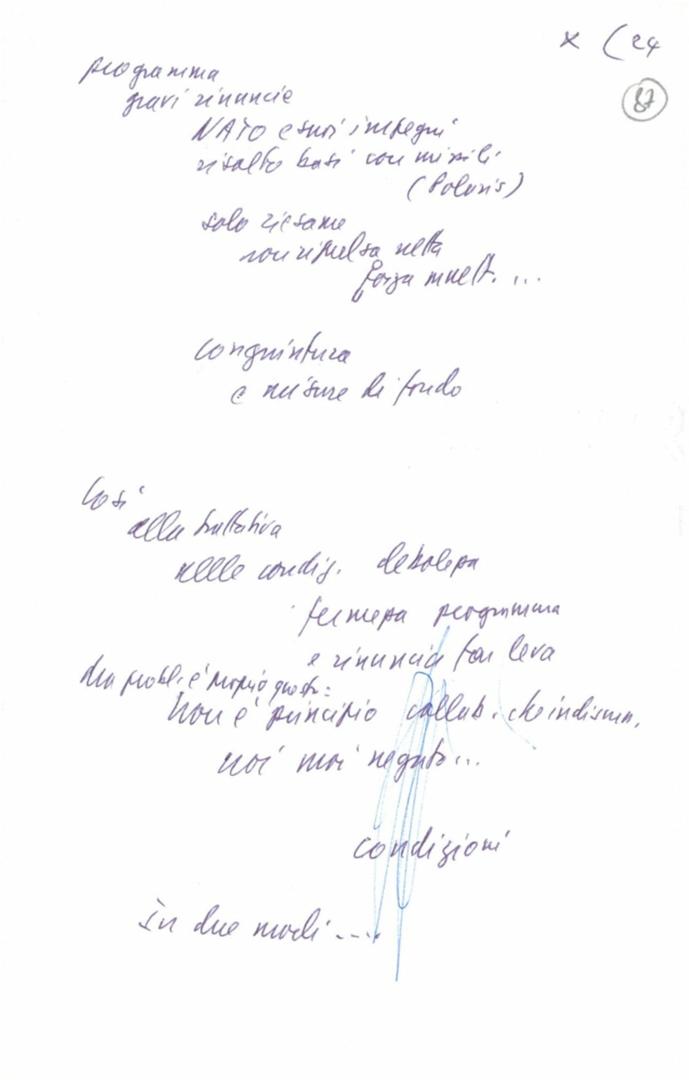 x (24
87
programma
gravi rinuncie
NATO e suoi impegni
risalto basi con missili
(Polaris)
solo riesame
non ripulsa netta
forza mult. ...
congiuntura
e misure di fondo
Così
alla trattativa
nelle condiz. debolezza
fermezza programma
e rinuncia far leva
Ma probl. è proprio questo:
Non è principio collab. che
noi mai negato...
condizioni
in due modi ....